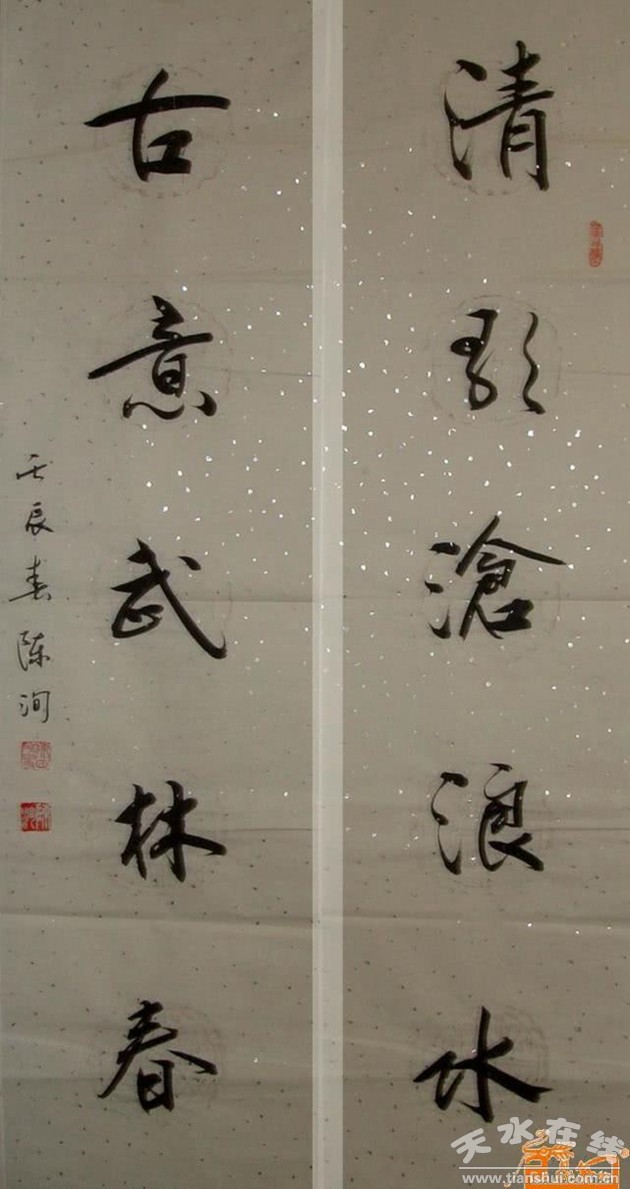 清歌滄浪水
古意武林春
壬辰春陈洵
天水在线
www.tianshui.com.cn